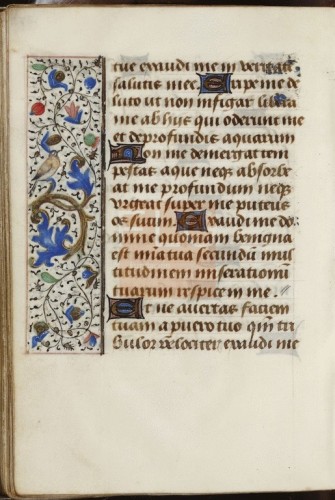 tue exaudi me in veritate
salutis mee. Eripe me de
luto ut non infigar libera
me ab hiis qui oderunt me
et de profundis aquarum
Non me demergat tem
pestas aque neqȝ absorbe
at me profundum neqȝ
urgeat super me puteus
os suum. Exaudi me do
mine quoniam benigna
est mīa tua secundū mul
titudinem miserationū
tuarum respice in me.
Et ne avertas faciem
tuam a puero tuo qm̄ tri
bulor velociter exaudi me